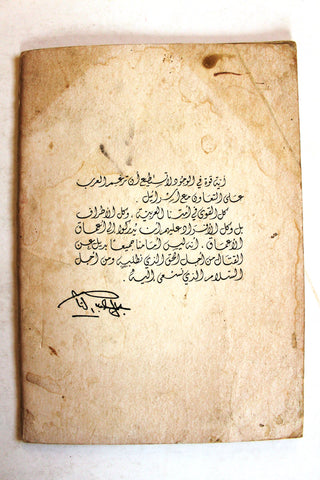 أية قوة في الوجود لا تستطيع أن ترغم العرب
على التعاون مع اسرائيل .
كل القوى في أمتنا العربية . وكل الأطراف
بل وكل الأفراد عليهم ان يدركوا إلى أعماق
الأعماق . انه ليس أمامنا جميعا بديل عن
القتال من أجل الحق الذي نطلبه ومن أجل
السلام الذي نسعى اليه .